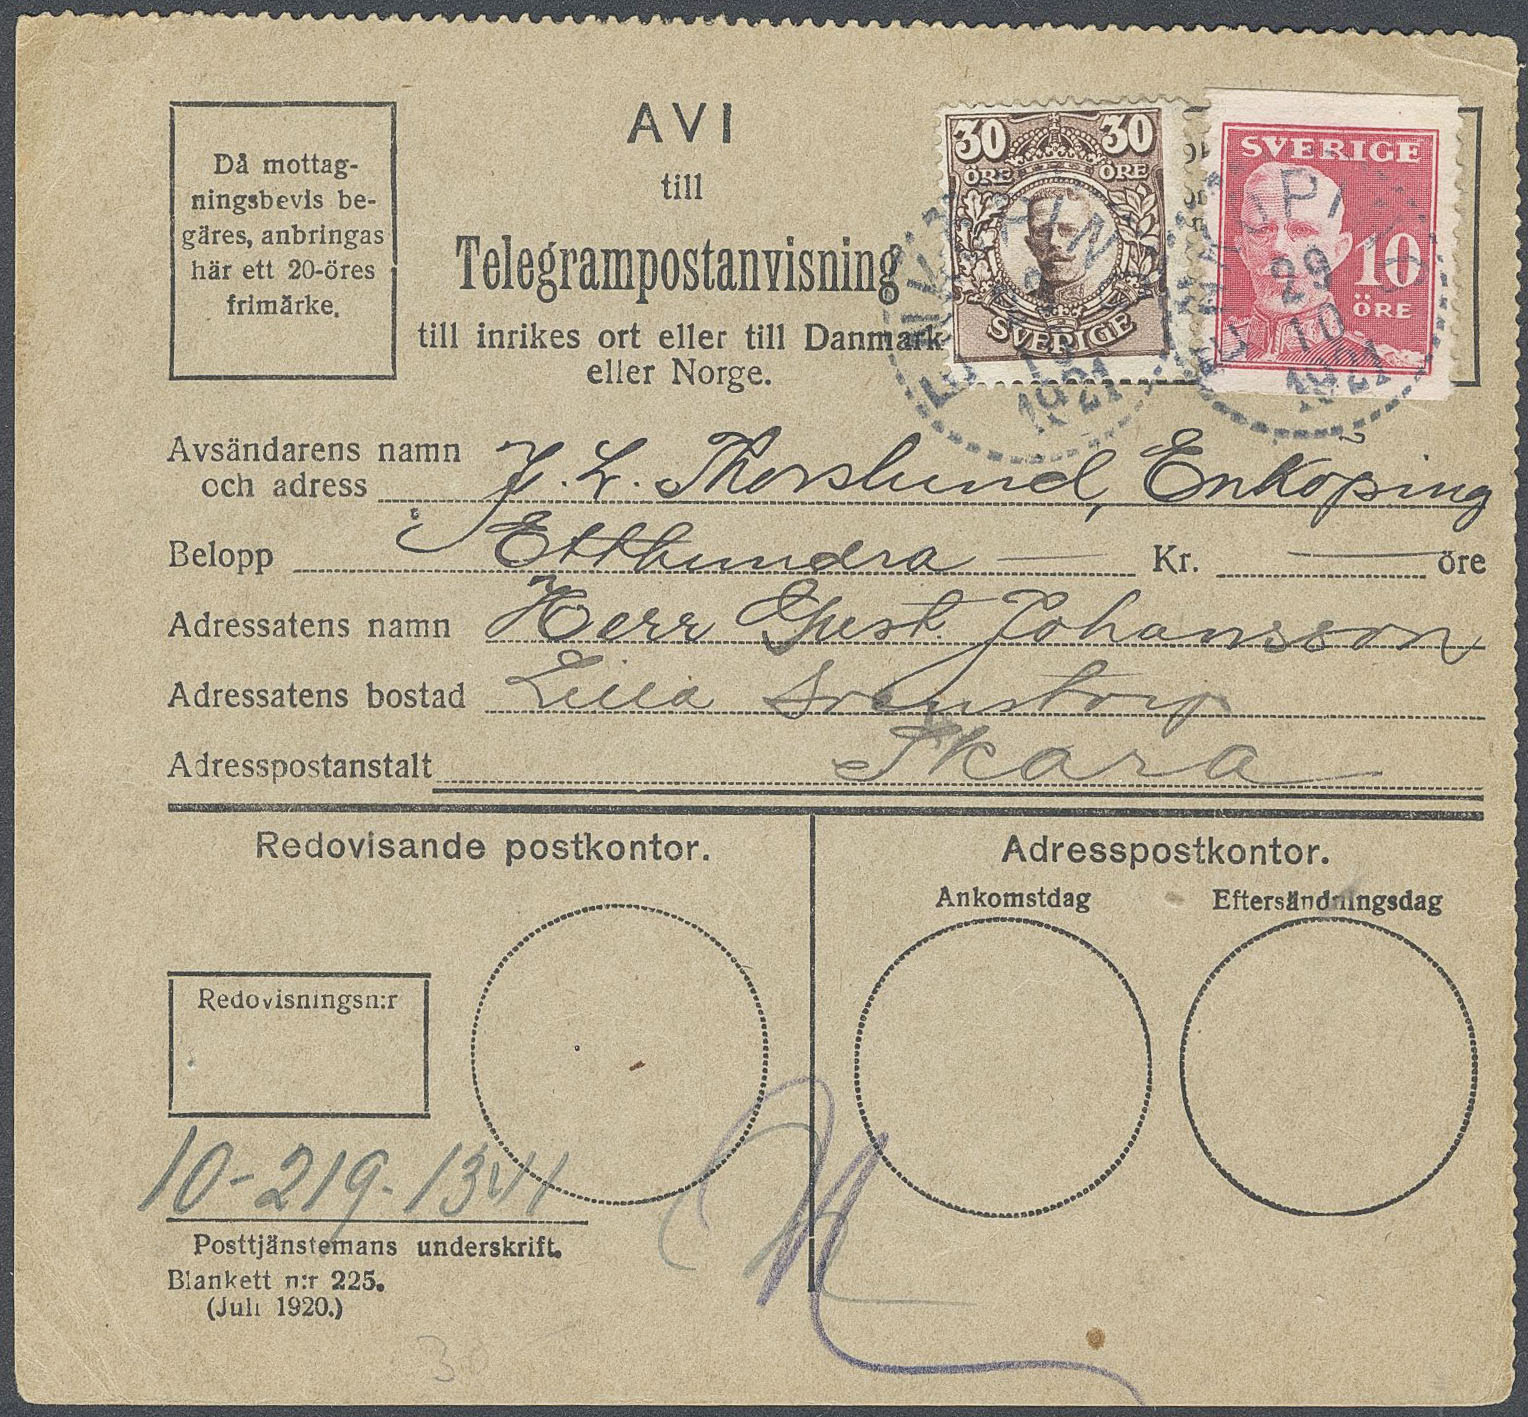 Då mottag-
ningsbevis be-
gäres, anbringas
här ett 20-öres
frimärke.
AVI
till
Telegrampostanvisning
till inrikes ort eller till Danmark
eller Norge.
30 30
ÖRE ÖRE
SVERIGE
SVERIGE
10
ÖRE
ENKÖPING
10
1921
ENKÖPING
29
10
1921
Avsändarens namn
och adress J. L. Thorslund, Enköping
Belopp Etthundra — Kr. — öre
Adressatens namn Herr Gust. Johansson
Adressatens bostad Lilla Svenstorp
Adresspostanstalt Skara
Redovisande postkontor.
Adresspostkontor.
Ankomstdag Eftersändningsdag
Redovisningsn:r
10-219-1341
Posttjänstemans underskrift.
Blankett n:r 225.
(Juli 1920.)